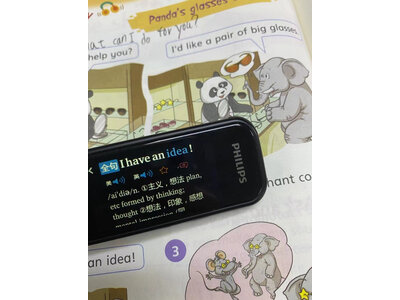 Panda's glasses
what can I do for you?
help you?
I'd like a pair of big glasses.
全句 I have an idea!
英 美
/aɪˈdiə/n. ①主义，想法 plan,
etc formed by thinking;
thought ②想法，印象，感想
mental impression
PHILIPS
hant co
an idea!
3